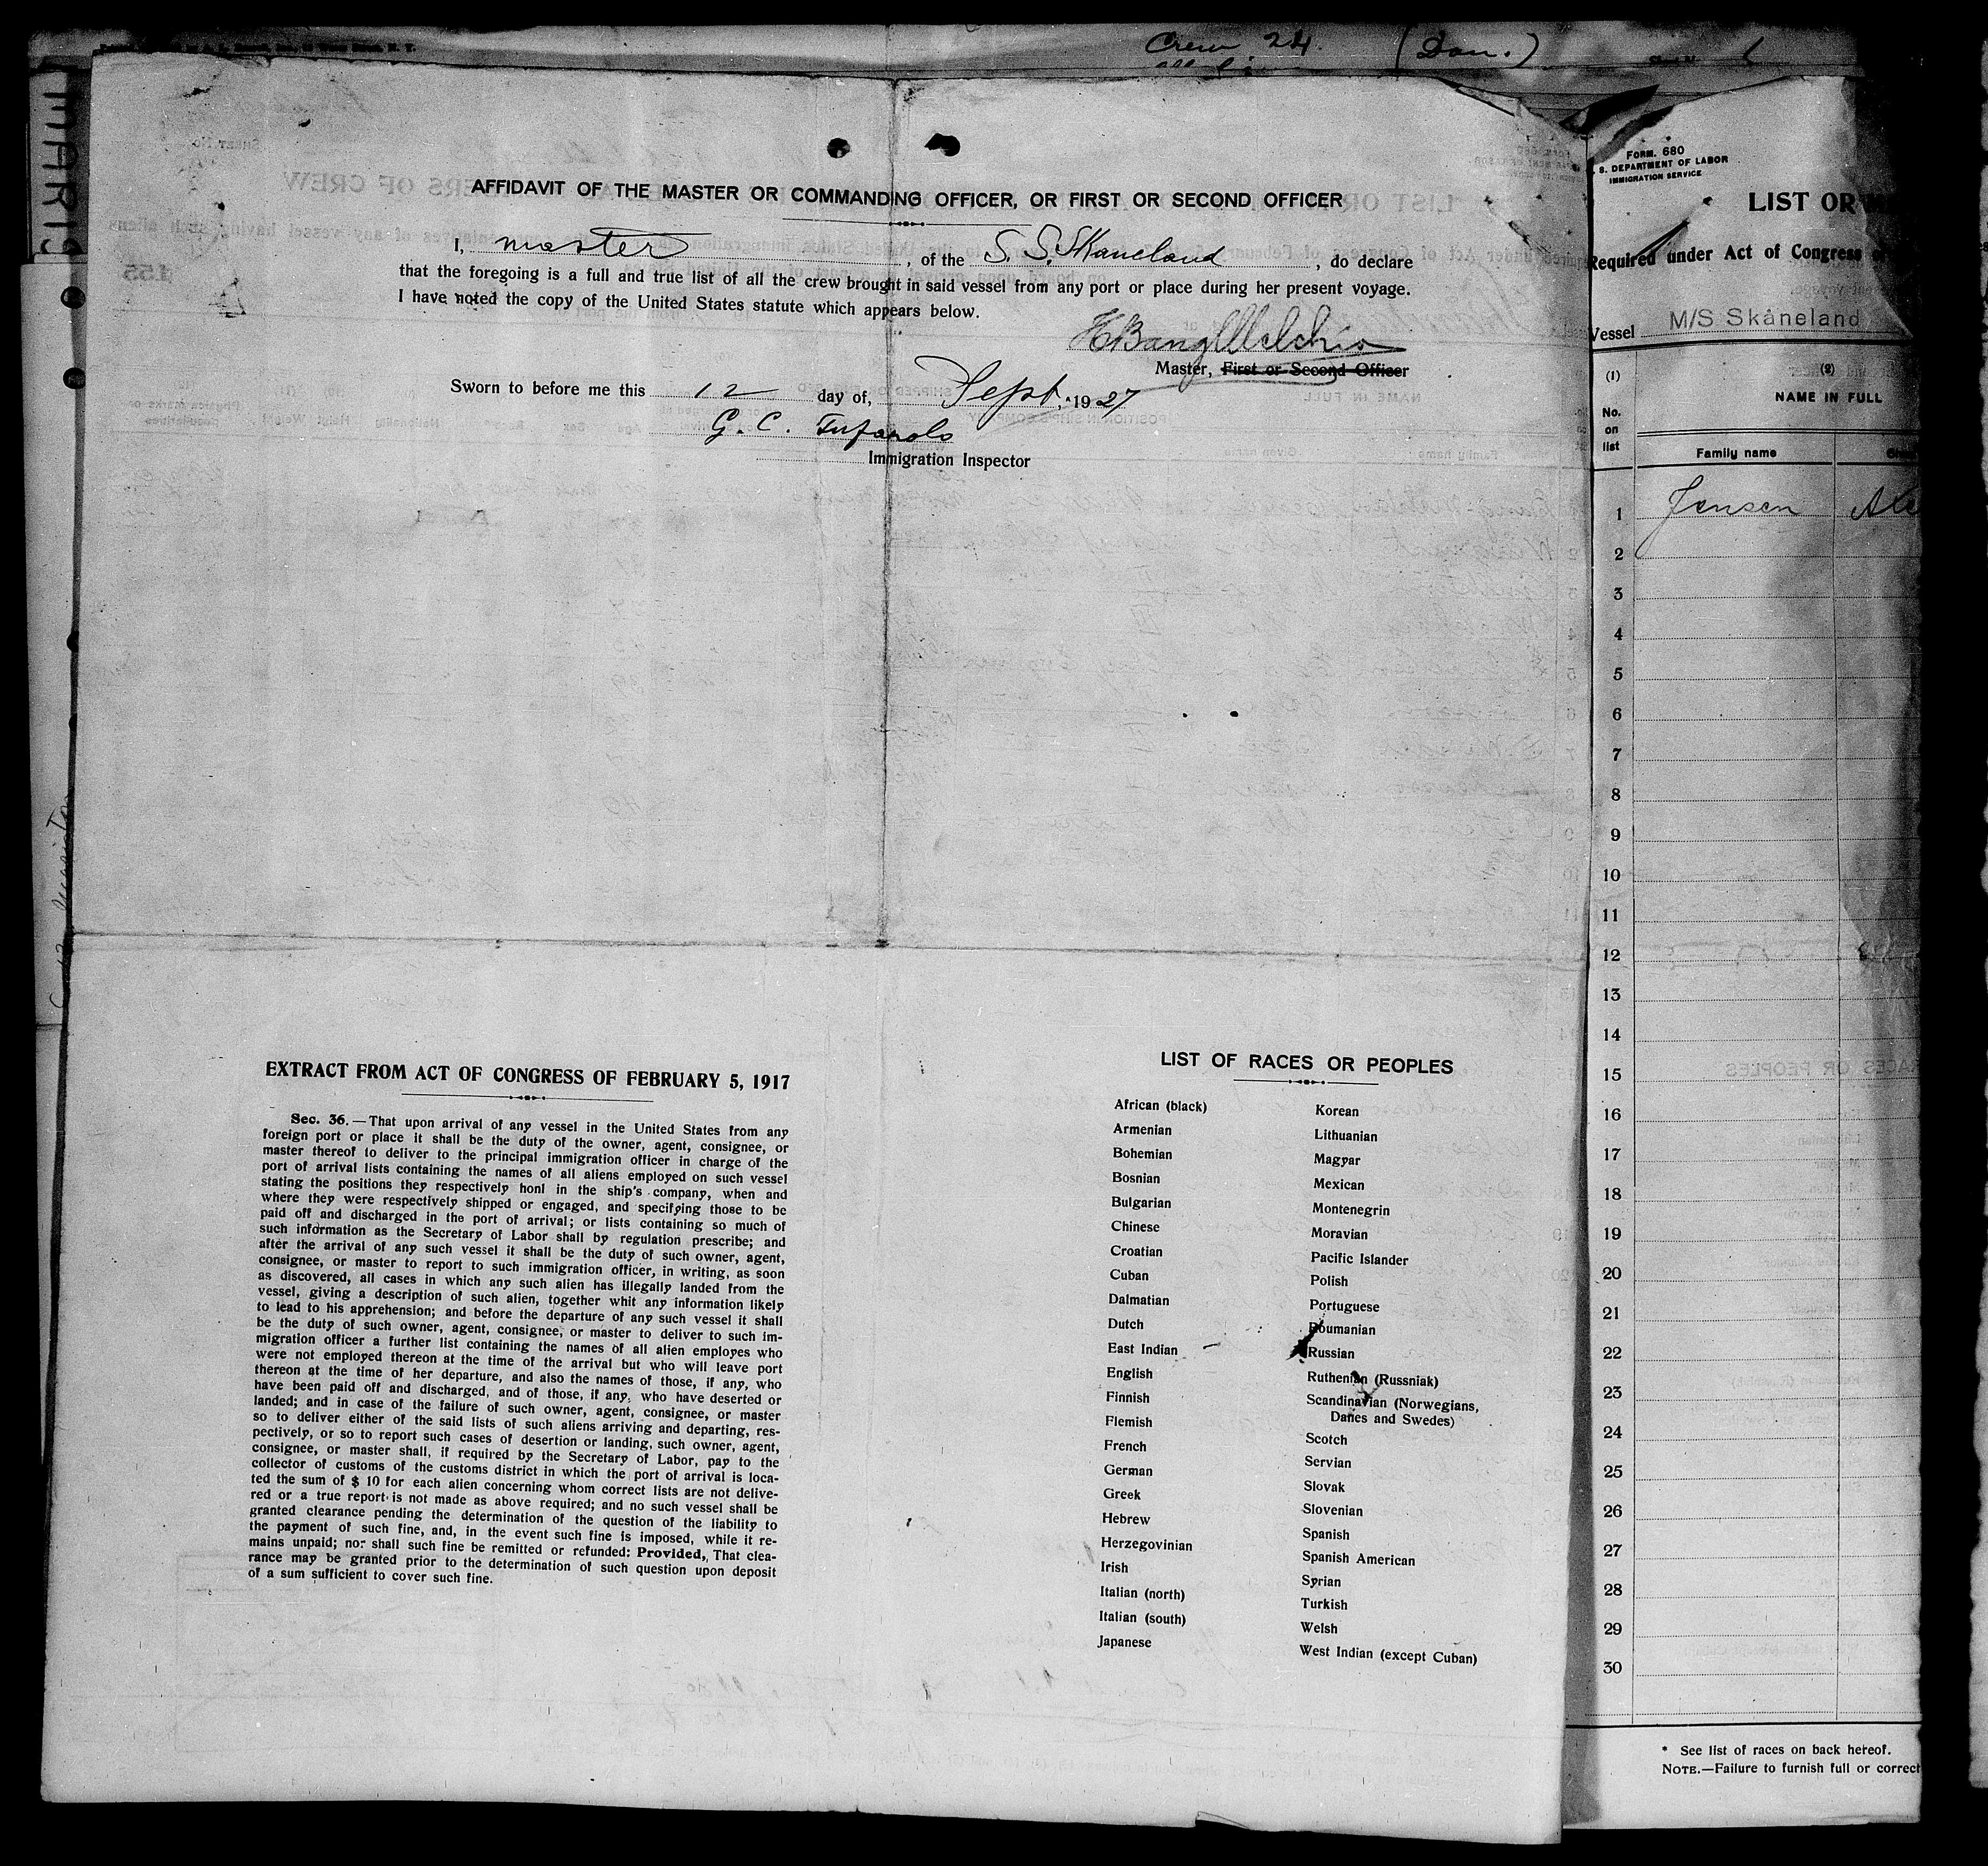 Crew 24. (Dan.)
AFFIDAVIT OF THE MASTER OR COMMANDING OFFICER, OR FIRST OR SECOND OFFICER
I, master, of the S. S. Skaneland, do declare
that the foregoing is a full and true list of all the crew brought in said vessel from any port or place during her present voyage.
I have noted the copy of the United States statute which appears below.
H Bang Melchio
Master, First or Second Officer
Sworn to before me this 12 day of, Sept, 1927
G. C.
Immigration Inspector
EXTRACT FROM ACT OF CONGRESS OF FEBRUARY 5, 1917
Sec. 36. — That upon arrival of any vessel in the United States from any
foreign port or place it shall be the duty of the owner, agent, consignee, or
master thereof to deliver to the principal immigration officer in charge of the
port of arrival lists containing the names of all aliens employed on such vessel
stating the positions they respectively honl in the ship's company, when and
where they were respectively shipped or engaged, and specifying those to be
paid off and discharged in the port of arrival; or lists containing so much of
such information as the Secretary of Labor shall by regulation prescribe; and
after the arrival of any such vessel it shall be the duty of such owner, agent,
consignee, or master to report to such immigration officer, in writing, as soon
as discovered, all cases in which any such alien has illegally landed from the
vessel, giving a description of such alien, together whit any information likely
to lead to his apprehension; and before the departure of any such vessel it shall
be the duty of such owner, agent, consignee, or master to deliver to such im-
migration officer a further list containing the names of all alien employes who
were not employed thereon at the time of the arrival but who will leave port
thereon at the time of her departure, and also the names of those, if any, who
have been paid off and discharged, and of those, if any, who have deserted or
landed; and in case of the failure of such owner, agent, consignee, or master
so to deliver either of the said lists of such aliens arriving and departing, res-
pectively, or so to report such cases of desertion or landing, such owner, agent,
consignee, or master shall, if required by the Secretary of Labor, pay to the
collector of customs of the customs district in which the port of arrival is loca-
ted the sum of $ 10 for each alien concerning whom correct lists are not delive-
red or a true report is not made as above required; and no such vessel shall be
granted clearance pending the determination of the question of the liability to
the payment of such fine, and, in the event such fine is imposed, while it re-
mains unpaid; nor shall such fine be remitted or refunded: Provided, That clea-
rance may be granted prior to the determination of such question upon deposit
of a sum sufficient to cover such fine.
LIST OF RACES OR PEOPLES
African (black)
Armenian
Bohemian
Bosnian
Bulgarian
Chinese
Croatian
Cuban
Dalmatian
Dutch
East Indian
English
Finnish
Flemish
French
German
Greek
Hebrew
Herzegovinian
Irish
Italian (north)
Italian (south)
Japanese
Korean
Lithuanian
Magyar
Mexican
Montenegrin
Moravian
Pacific Islander
Polish
Portuguese
Roumanian
Russian
Ruthenian (Russniak)
Scandinavian (Norwegians,
Danes and Swedes)
Scotch
Servian
Slovak
Slovenian
Spanish
Spanish American
Syrian
Turkish
Welsh
West Indian (except Cuban)
FORM. 680
S. DEPARTMENT OF LABOR
IMMIGRATION SERVICE
LIST OR
Required under Act of Congress
Vessel M/S Skåneland
(1) (2)
No. on list
NAME IN FULL
Family name
1 Jensen
2
3
4
5
6
7
8
9
10
11
12
13
14
15
16
17
18
19
20
21
22
23
24
25
26
27
28
29
30
* See list of races on back hereof.
NOTE.—Failure to furnish full or correct